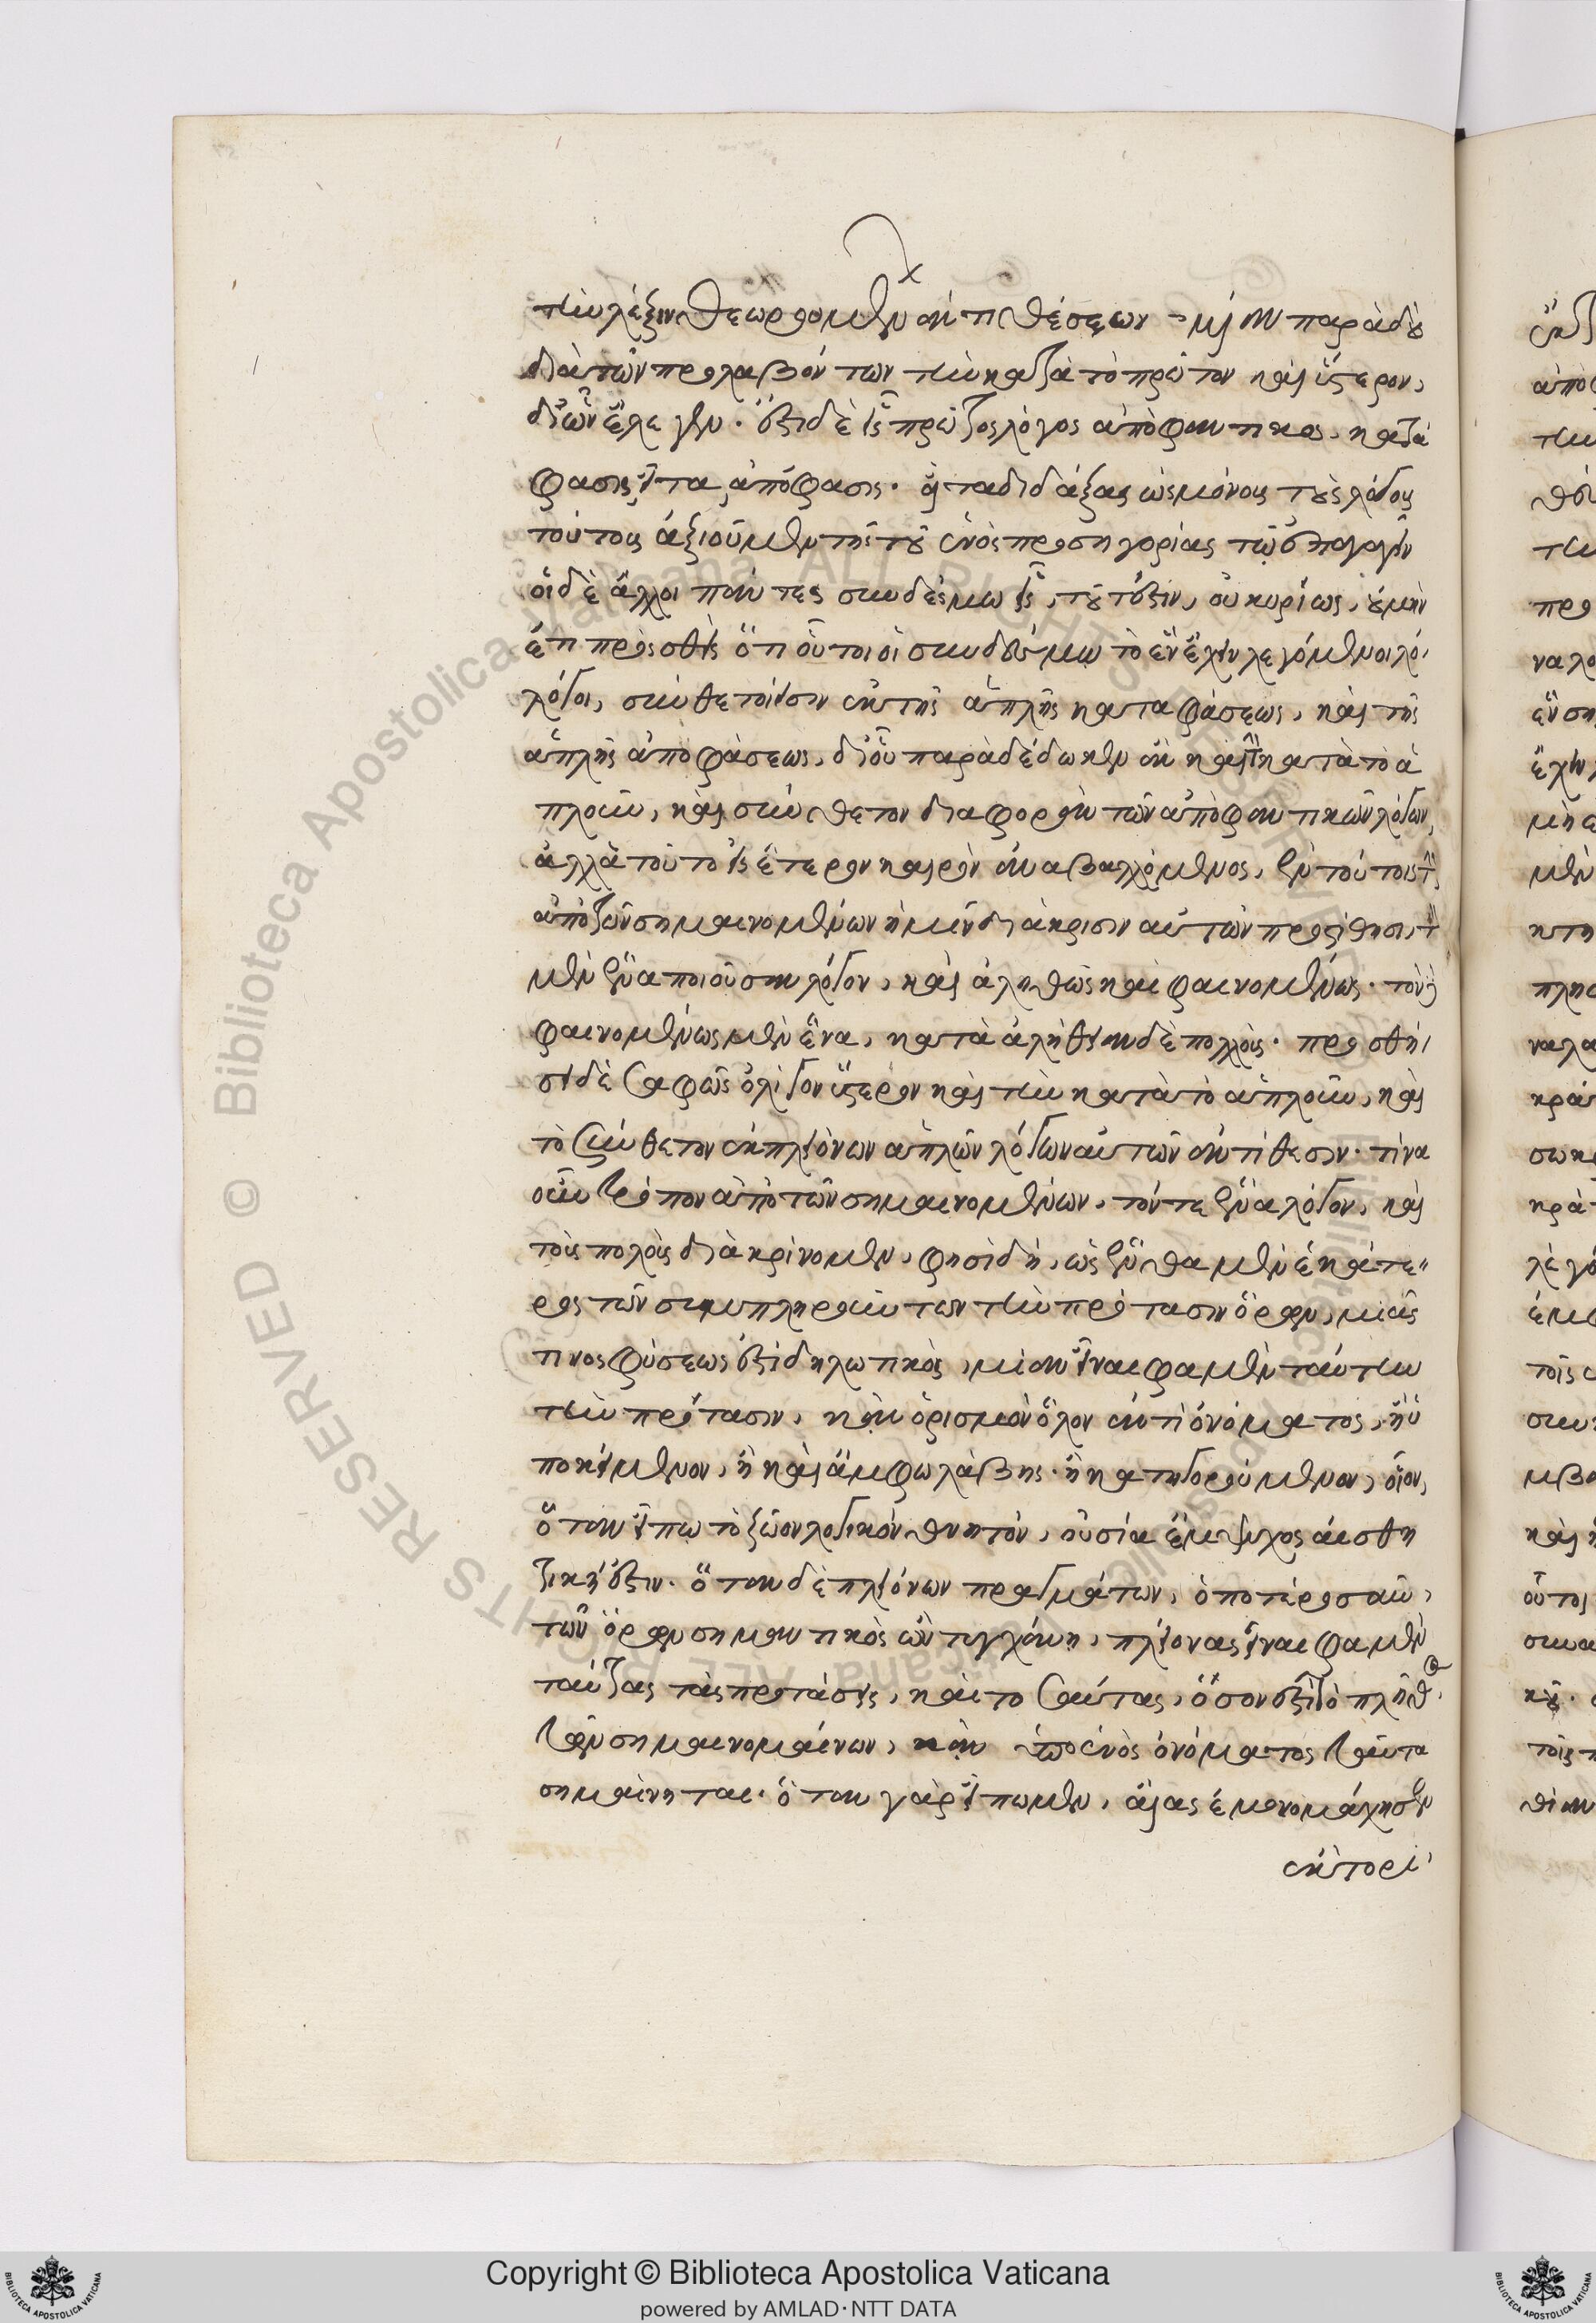 τὴν λέξιν θεωρουμένων ἀντιθέσεων, μίαν παραδοὺς
διὰ τῶν προλαβόντων τὴν κατὰ τὸ πρῶτον καὶ ὕστερον,
δι' ὧν ἔλεγεν. ἔστι δὲ εἷς πρῶτος λόγος ἀποφαντικος, κατά
φασις, εἶτα ἀπόφασις. εἶτα διδάξας ὡς μόνους τοὺς λόγους
τούτους ἀξιοῦμεν τῆς τοῦ ἑνὸς προσηγορίας τῷ ἐπαγαγεῖν
οἱ δὲ ἄλλοι πάντες συνδέσμω εἷς, τουτέστιν, οὐ κυρίως,
ἔτι προσθεὶς ὅτι οὗτοι οἱ συνδέσμω τὸ ἓν ἔχειν λεγόμενοι λό
λόγοι, σύνθετοί εἰσιν ἐκ τῆς ἁπλῆς καταφάσεως, καὶ τῆς
ἁπλῆς ἀποφάσεως, δι' οὗ παραδέδωκεν ἂν καὶ τὴν κατὰ τὸ ἁ
πλοῦν, καὶ σύνθετον διαφορὰν τῶν ἀποφαντικῶν λόγων,
ἀλλὰ τοῦτο εἰς ἕτερον καιρὸν ἀναβαλλόμενος, ἐν τούτοις τὴν
ἀπὸ τῶν σημαινομένων ἡμῖν διάκρισιν αὐτῶν προστίθησι, τὸν
μὲν ἕνα ποιοῦσαν λόγον, καὶ ἀληθῶς καὶ φαινομένως. τὸν δὲ
φαινομένως μὲν ἕνα, κατὰ ἀλήθειαν δὲ πολλοὺς. προσθή
σει δὲ σαφῶς ὀλίγον ὕστερον καὶ τὴν κατὰ τὸ ἁπλοῦν, καὶ
τὸ σύνθετον ἐκ πλειόνων ἁπλῶν λόγων αὐτῶν ἀντίθεσιν. τίνα
οὖν τρόπον ἀπὸ τῶν σημαινομένων, τόν τε ἕνα λόγον, καὶ
τοὺς πολοὺς διακρίνομεν, φησὶ δὴ, ὡς ἔνθα μὲν ἑκάτε
ρος τῶν συμπληρούντων τὴν πρότασιν ὅρων, μιᾶς
τινος φύσεως ἐστὶ δηλωτικὸς, μίαν εἶναι φαμὲν ταύτην
τὴν πρότασιν, κἂν ὁρισμὸν ὅλον ἀντὶ ὀνόματος, ἢ ὑ
ποκείμενον, ἢ καὶ ἄμφω λάβης. ἢ κατηγορούμενον, οἷον,
ὅταν εἴπω τὸ ζῶον λογικόν θνητόν, οὐσία ἔμψυχος αἰσθη
τική ἐστιν. ὅταν δὲ πλειόνων πραγμάτων, ὁποτεροσοῦν,
τῶν ὅρων σημαντικὸς ὢν τυγχάνη, πλείονας εἶναι φαμὲν
ταύτας τὰς προτάσεις, καὶ τοσαύτας, ὅσον ἐστὶ τὸ πλῆθος
τῶν σημαινομένων, κἂν ὑπὸ ἑνὸς ὀνόματος ταῦτα
σημαίνηται. ὅταν γὰρ εἴπωμεν, αἴας ἐμονομάχησεν
ἕκτορι